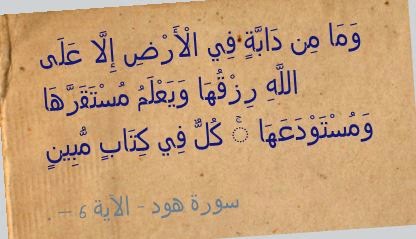 وَمَا مِن دَابَّةٍ فِي الْأَرْضِ إِلَّا عَلَى
اللَّهِ رِزْقُهَا وَيَعْلَمُ مُسْتَقَرَّهَا
وَمُسْتَوْدَعَهَا ۚ كُلٌّ فِي كِتَابٍ مُّبِينٍ
سورة هود - الآية 6 – .